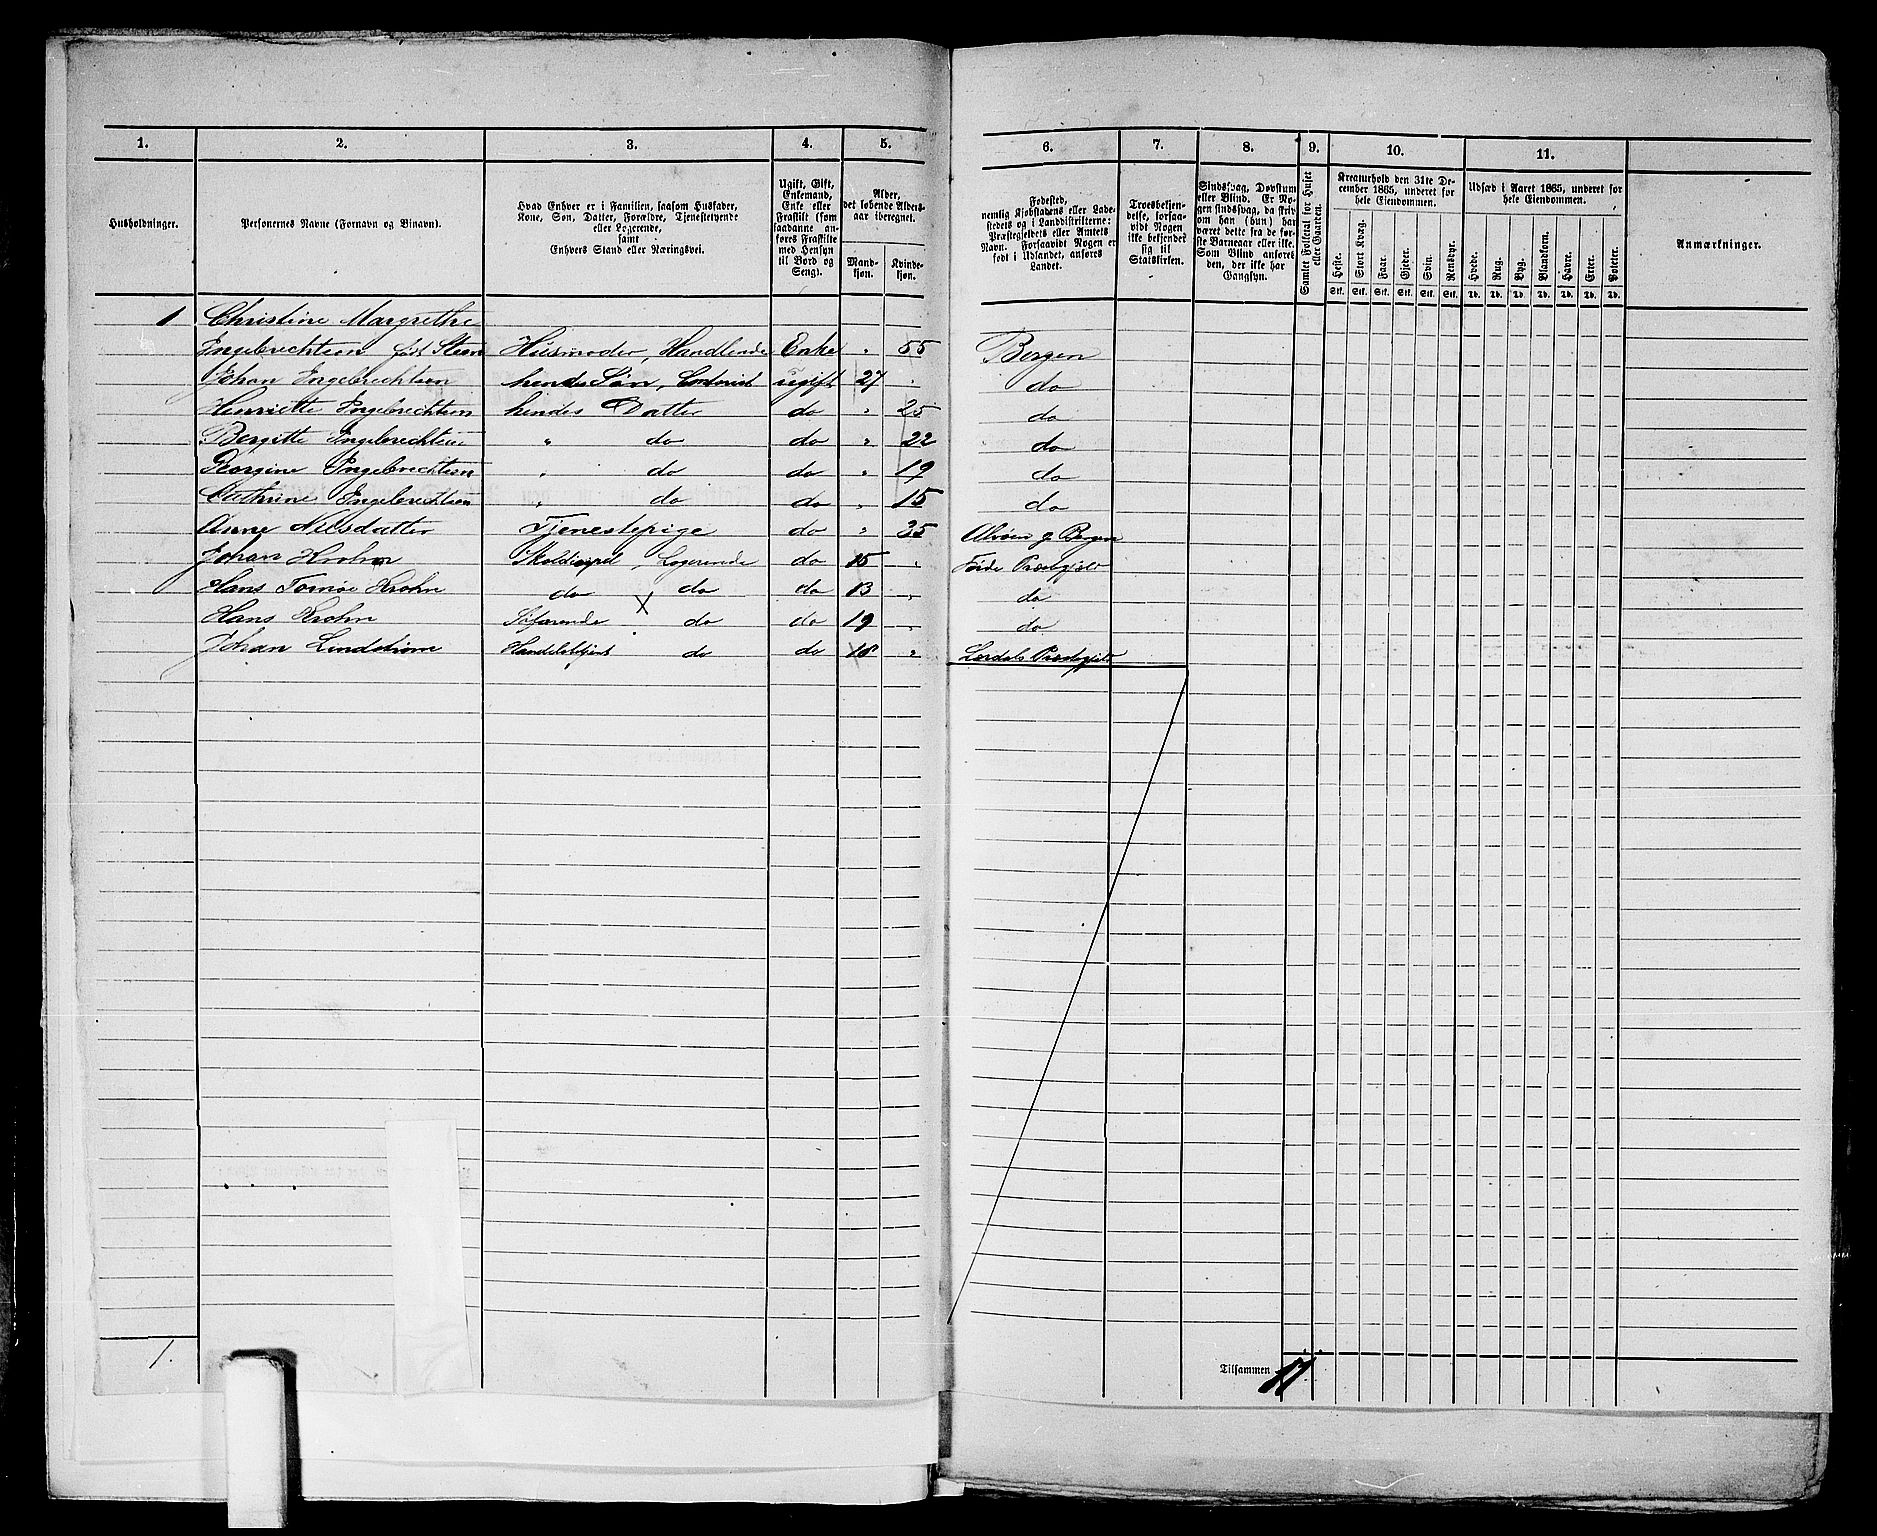 1. 2. 3. 4. 5. 6. 7. 8. 9. 10. 11.
Husholdninger.
Personernes Navne (Fornavn og Binavn).
Hvad Enhver er i Familien, saasom Husfader,
Kone, Søn, Datter, Forældre, Tjenestetyende
eller Logerende,
samt
Enhvers Stand eller Næringsvei.
Ugift, Gift,
Enkemand,
Enke eller
Fraskilt (som
saadanne an-
føres Fraskilte
med Hensyn
til Bord og
Seng).
Alder,
det løbende Alders-
aar iberegnet.
Mand-
kjøn.
Kvinde-
kjøn.
Fødested,
nemlig Kjøbstadens eller Lade-
stedets og i Landdistrikterne:
Præstegjeldets eller Amtets
Navn. Forsaavidt Nogen er
født i Udlandet, anføres
Landet.
Troesbekjen-
delse, forsaa-
vidt Nogen
ikke bekjender
sig til
Statskirken.
Sindssvag, Døvstum
eller Blind. Er No-
gen sindssvag, da skriv
om han (hun) har
været dette fra de før-
ste Barneaar eller ikke.
Som Blind anføres
den, der ikke har
Gangsyn.
Samlet Folketal for Huset
eller Gaarden.
Kreaturhold den 31te De-
cember 1865, underet for
hele Eiendommen.
Heste. Stort Kvæg. Faar. Gjeder. Svin. Rensdyr.
Stk. Stk. Stk. Stk. Stk. Stk.
Udsæd i Aaret 1865, underet for
hele Eiendommen.
Hvede. Rug. Byg. Blandkorn. Havre. Erter. Poteter.
Td. Td. Td. Td. Td. Td. Td.
Anmærkninger.
1 Christine Margrethe
Engebrechtsen født Steen Huusmoder, Handlende Enke " 55 Bergen
Johan Engebrechtsen hendes Søn, Contorist ugift 27 " do
Henriette Engebrechtsen hendes Datter do " 25 do
Bergitte Engebrechtsen " do do " 22 do
Georgine Engebrechtsen " do do " 19 do
Cathrine Engebrechtsen " do do " 15 do
Anne Nilsdatter Tjenestepige do " 35 Alvøen Bergen
Johan Krohn Logerende do 15 " Førde Præstegjeld
Hans Tornøe Krohn do do do 13 " do
Hans Krohn Søfarende X do do 19 " do
Johan Lindstrøm Handelsbetjent do do 18 " Lerdals Præstegjeld
1.
Tilsammen 11